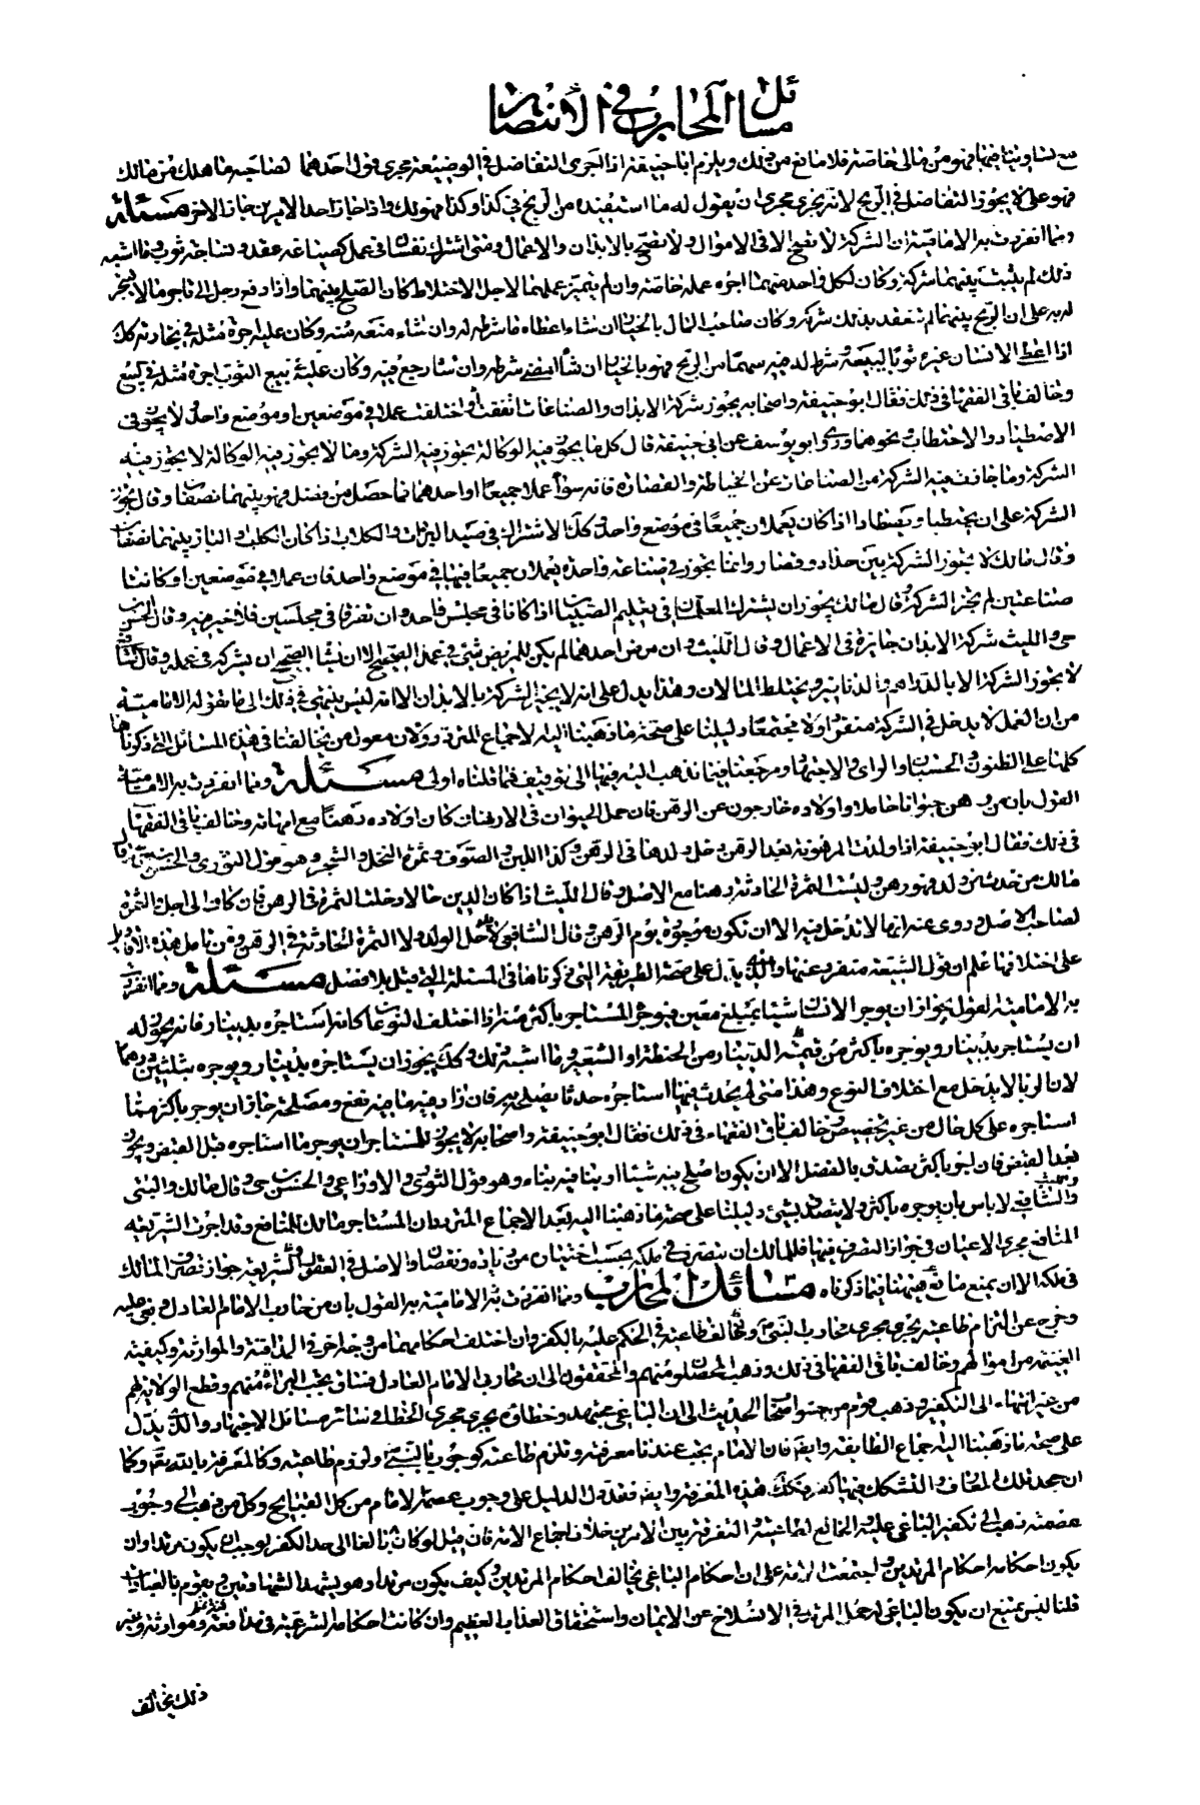 مسائل المحارب في الانتصار
مع تساويتنا فيها فهو من مالى خاصة فلا مانع من ذلك ويلزم ابا حنيفة اذا اجرى التفاضل في الوضيعة مجرى قول احدهما لصاحبه ما هلك من مالك
فهو على لا يجوز التفاضل في الربح لانه يجرى مجرى ان يقول له ما استفيده من الربح في كذا وكذا فهو لك واذا جاز احد الامرين جاز الاخر مسئلة
ومما انفردت به الامامية ان الشركة لا تصح الا في الاموال ولا تصح بالابدان والاعمال ومتى اشترك نفسان في عمل كصياغة عقد ونساجة ثوب وما اشبه
ذلك لم يثبت بينهما شركة وكان لكل واحد منهما اجرة عمله خاصة وان لم يتميز عملهما لاجل الاختلاط كان الصلح بينهما واذا دفع رجل الى تاجر مالا ليتجر
له به على ان الربح بينهما لم تنعقد بذلك شركة وكان صاحب المال بالخيار ان شاء اعطاه ما شرطه له وان شاء منعه منه وكان عليه اجرة مثله في تجارته كذلك
اذا اعطى الانسان غيره ثوبا ليبيعه وشرط له فيه سهما من الربح فهو بالخيار ان شاء امضى شرطه وان شاء رجع فيه وكان عليه بيع الثوب اجرة مثله في بيع
وخالف باقى الفقهاء في ذلك فقال ابو حنيفة واصحابه يجوز شركة الابدان والصناعات اتفقت او اختلفت عملا في موضعين او موضع واحد ولا يجوز في
الاصطياد والاحتطاب نحوهما وروى ابو يوسف عن ابى حنيفة قال كل ما يجوز فيه الوكالة يجوز فيه الشركة وما لا يجوز فيه الوكالة لا يجوز فيه
الشركة وما جازت فيه الشركة من الصناعات عن الخياطة والقصارة فانه سواء عملا جميعا او احدهما فما حصل من فضل فهو بينهما نصفان وقال يجوز
الشركة على ان يحتطبا ويصطادا اذا كان يعملان جميعا في موضع واحد وكذلك الاشتراك في صيد البزاة والكلاب اذا كان الكلب والباز بينهما نصفان
وقال مالك لا يجوز الشركة بين حداد وقصار وانما يجوز في صناعة واحدة يعملان جميعا فيها في موضع واحد فان عملا في موضعين او كانتا
صناعتين لم يجز الشركة وقال مالك يجوز ان يشترك المعلمان في تعليم الصبيان اذا كانا في مجلس واحد وان تفرقا في مجلسين فلا خير فيه وقال الحسن بن
حى والليث شركة الابدان جايزة في الاعمال وقال الليث وان مرض احدهما لم يكن للمريض شئ في عمل الصحيح الا ان يشاء الصحيح ان يشركه في عمله وقال الشافعى
لا يجوز الشركة الا بالدراهم والدنانير ويختلط المالان وهذا يدل على انه لا يجيز الشركة بالابدان الا انه ليس ينتهى في ذلك الى ما تقوله الامامية
من ان العمل لا يدخل في الشركة منفردا ولا مجتمعا دليلنا على صحة ما ذهبنا اليه الاجماع المتردد ولان معول من يخالفنا في هذه المسائل التى ذكرناها
كلها على الظنون والحسبان والراى والاجتهاد ومرجعنا فيما نذهب اليه فيها الى توقيف فما قلناه اولى مسئلة ومما انفردت به الامامية
القول بان من رهن حيوانا حاملا واولاده خارجون عن الرهن فان حمل الحيوان في الارتهان كان اولاده رهنا مع امهاته وخالف باقى الفقهاء
في ذلك فقال ابو حنيفة اذا ولدت المرهونة بعد الرهن دخل ولدها في الرهن وكذا اللبن والصوف وثمرة النخل والشجر وهو قول الثورى والحسن بن حى وقال
مالك من حدث من ولد فهو رهن وليست الثمرة الحادثة رهنا مع الاصل وقال الليث اذا كان الدين حالا دخلت الثمرة في الرهن فان كان الى اجل فالثمرة
لصاحب الاصل وروى عنه ايضا لا تدخل فيه الا ان تكون موجودة يوم الرهن وقال الشافعى لا يدخل الولد ولا الثمرة الحادثة في الرهن ومن تامل هذه الاقاويل
على اختلافها علم ان قول الشيعة منفرد عنها والذى يدل على صحة الطريقة التى ذكرناها في المسئلة التى قبل بلا فصل مسئلة ومما انفردت
به الامامية القول بجواز ان يوجر الانسان شيئا بمبلغ معين فيوجر المستاجر باكثر منه اذا اختلف النوعان كانه استاجره بدينار فانه يجوز له
ان يستاجر بدينار ويوجره باكثر من قيمته الدينار من الحنطة او الشعير وما اشبه ذلك وكذلك يجوز ان يستاجره بدينار ويوجره بثلثين درهما
لان الربا لا يدخل مع اختلاف النوع وهذا متى لم يحدث فيما استاجره حدثا يصلح به فان زاد فيه ما فيه نفع ومصلحة جاز ان يوجر باكثر مما
استاجره على كل حال من غير تخصيص وخالف باقى الفقهاء في ذلك فقال ابو حنيفة واصحابه لا يجوز للمستاجر ان يوجر ما استاجره قبل القبض ويجوز
بعد القبض فان اجر باكثر تصدق بالفضل الا ان يكون اصلح فيه شيئا او بنا فيه بناء وهو قول الثورى والاوزاعى والحسن بن حى وقال مالك والبتى
والشافعى لا باس بان يوجره باكثر ولا يتصدق بشئ دليلنا على صحة ما ذهبنا اليه بعد الاجماع المتردد ان المستاجر مالك للمنافع وقد اجرت الشريعة
المنافع مجرى الاعيان في جواز التصرف فيها فللمالك ان يتصرف في ملكه بحسب اختياره من زيادة ونقصان والاصل في العقول والشريعة جواز تصرف المالك
في ملكه الا ان يمنع مانع فيهما فيما ذكرناه مسائل المحارب ومما انفردت به الامامية به القول بان من حارب الامام العادل وبغى عليه
وخرج عن التزام طاعته يجرى مجرى محارب النبى ص ومخالف طاعته في الحكم عليه بالكفر وان اختلف احكامهما من وجه اخر في المدافنة والموارثة وكيفية
الغنيمة من اموالهم وخالف باقى الفقهاء في ذلك وذهب المحصلون منهم والمحققون الى ان محارب الامام العادل فاسق يجب البراءة منهم وقطع الولاية لهم
من غير انتهاء الى التكفير وذهب قوم من حشو اصحاب الحديث الى ان الباغى مجتهد وخطاؤه يجرى مجرى الخطا في سائر مسائل الاجتهاد والذى يدل
على صحة ما ذهبنا اليه اجماع الطايفة وايضا فان الامام يجب عندنا معرفته وتلزم طاعته كوجوب النبى ص ولزوم طاعته وكالمعرفة بالله تعالى وكما
ان جحد تلك المعارف والتشكك فيها كفر فكذلك هذه المعرفة وايضا فقد دل الدليل على وجوب عصمة الامام من كل القبايح وكل من ذهب الى وجوب
عصمته ذهب الى تكفير الباغى عليه والخالع لطاعته والتفرقة بين الامرين خلاف اجماع الامة فان قيل لو كان ما ذكرتم بالغا الى حد الكفر لوجب ان يكون مرتدا وان
يكون احكامه احكام المرتدين واجتمعت الامة على ان احكام الباغى تخالف احكام المرتدين وكيف يكون مرتدا وهو يشهد الشهادتين ويقوم بالعبادات
قلنا ليس يمتنع ان يكون الباغى له حكم المرتد في الانسلاخ عن الايمان واستحقاق العذاب العظيم وان كانت احكامه الشرعية في مدافنته وموارثته وغير
ذلك يخالف